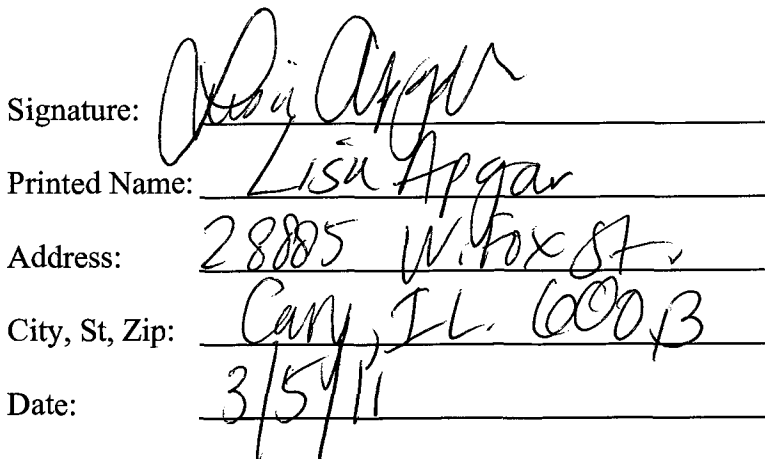 Signature: Lisa Apgar
Printed Name: Lisa Apgar
Address: 28885 W. Fox St.
City, St, Zip: Cary, IL. 60013
Date: 3/5/11